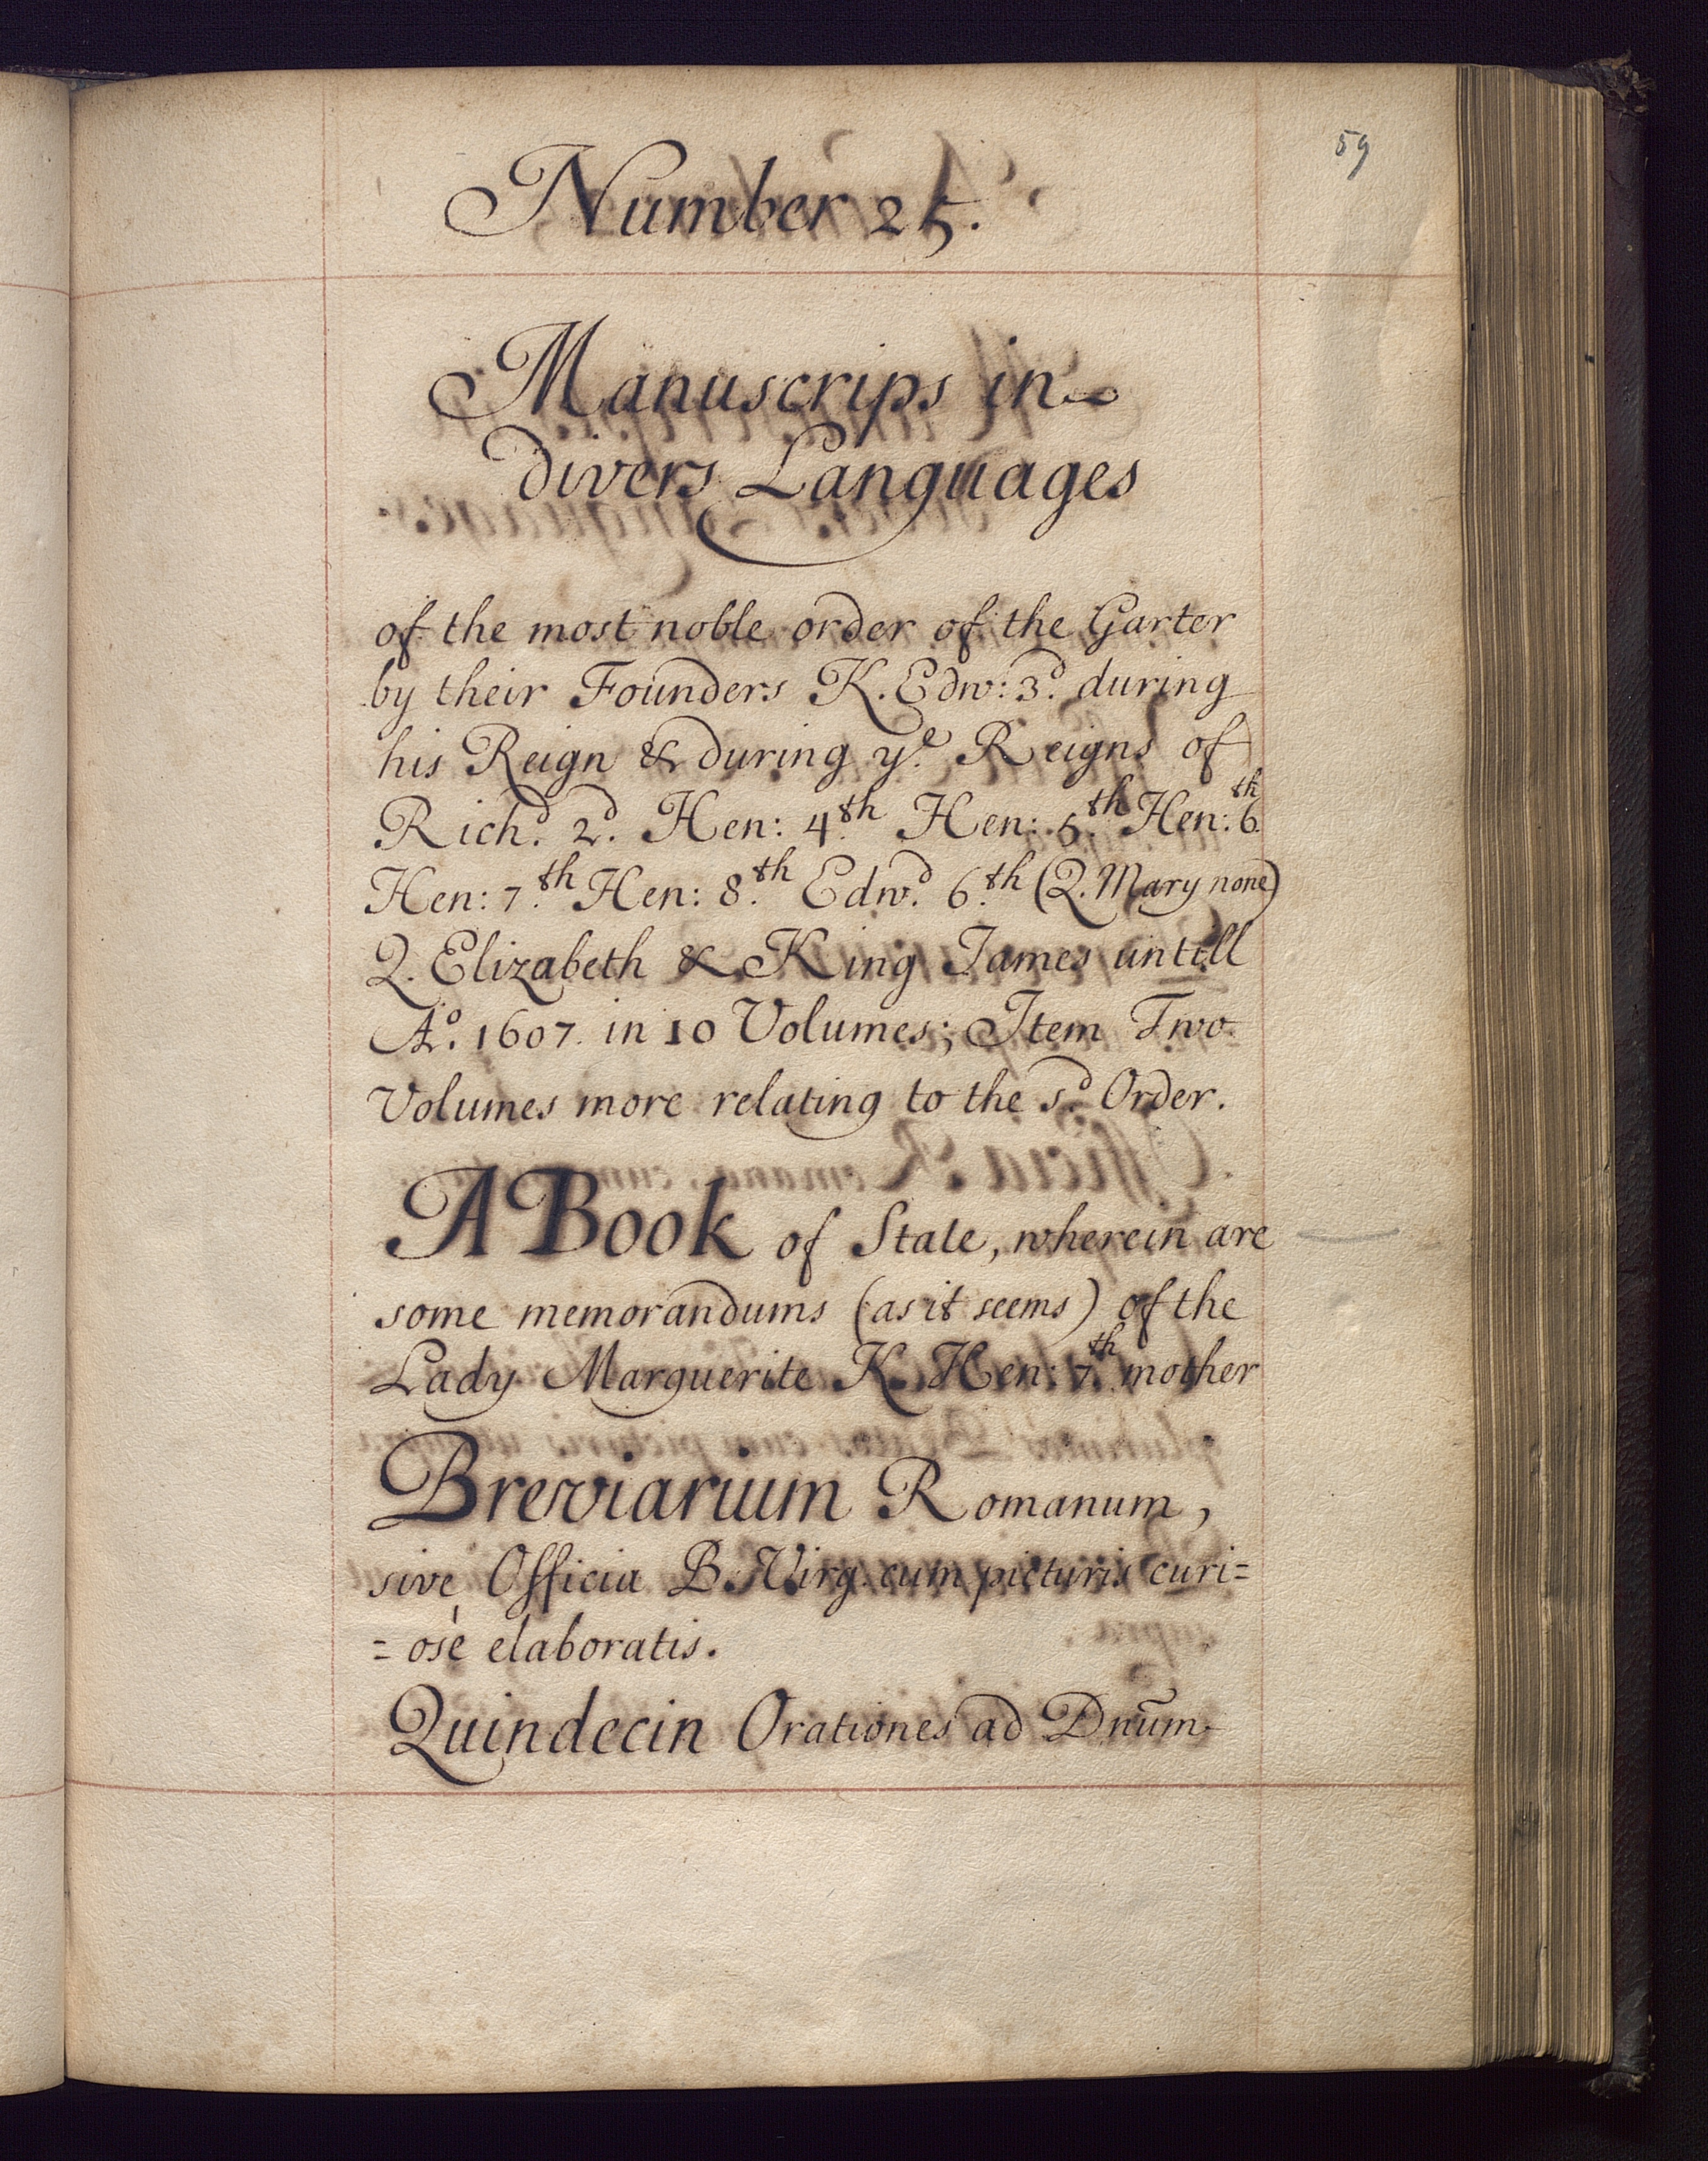 59
Number 25.
Manuscrips in
divers Languages
of the most noble order of the Garter
by their Founders K. Edw: 3.d during
his Reign & during y.e Reigns of
Rich.d 2.d Hen: 4.th Hen: 5.th Hen: 6.th
Hen: 7.th Hen: 8.th Edw.d 6.th (Q. Mary none)
Q. Elizabeth & King James untill
A.o 1607. in 10 Volumes; Item Two
Volumes more relating to the s.d Order.
A Book of State, wherein are
some memorandums (as it seems) of the
Lady Marguerite K. Hen: 7.th mother
Breviarium Romanum,
sive Officia B. Virg. cum picturis curi=
=osè elaboratis.
Quindecin Orationes ad Dnūm